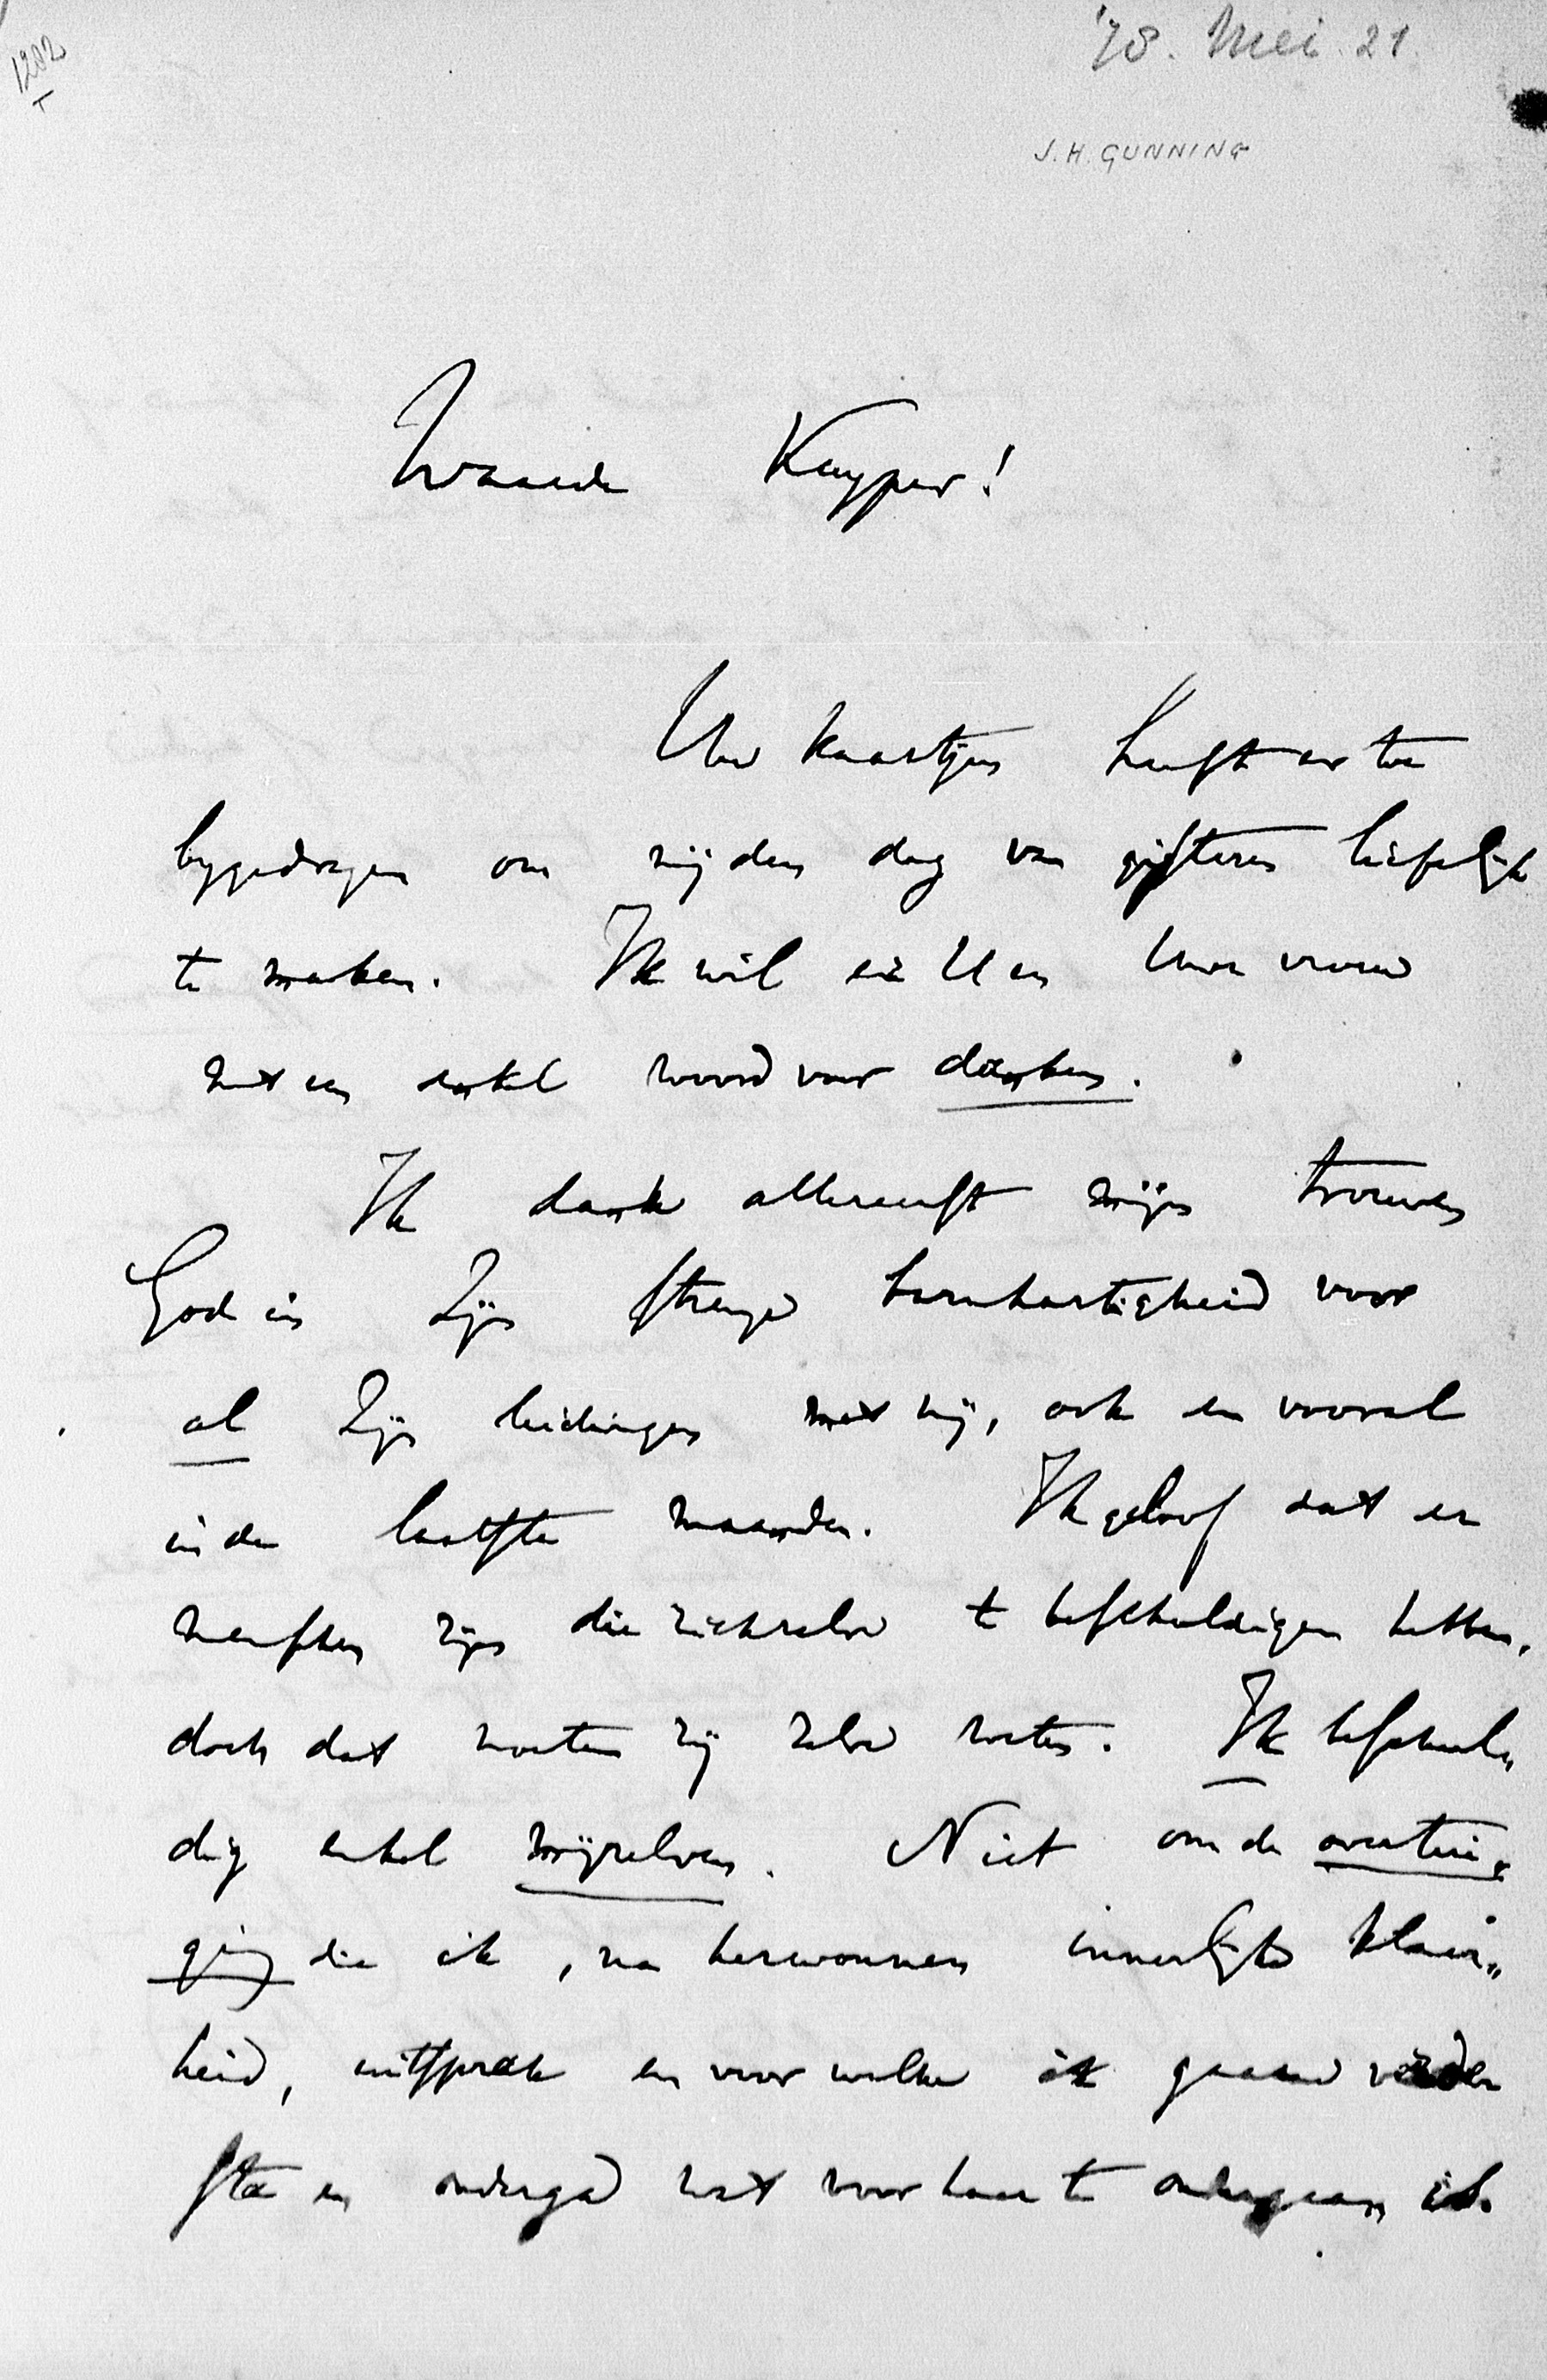 1202
'78. Mei. 21.
J. H. GUNNING
Waarde Kuyper!
Uw kaartjen heeft er toe
bygedragen om mij den dag van gisteren liefelijk
te maken. Ik wil er U en Uwe vrouw
met een enkel woord voor danken.
Ik dank allereerst mijn trouwen
God in Zijn strenge barmhartigheid voor
al Zijn leidingen met mij, ook en vooral
in de laatste maanden. Ik geloof dat er
menschen zijn die zichzelve te beschuldigen hebben,
doch dat moeten zij zelve weten. Ik beschul„
dig enkel mijzelven. Niet om de overtui„
ging die ik, na herwonnen innerlijke klaar„
heid, uitsprak en voor welke ik gaarne verder
sta en onderga wat voor haar te ondergaan is.